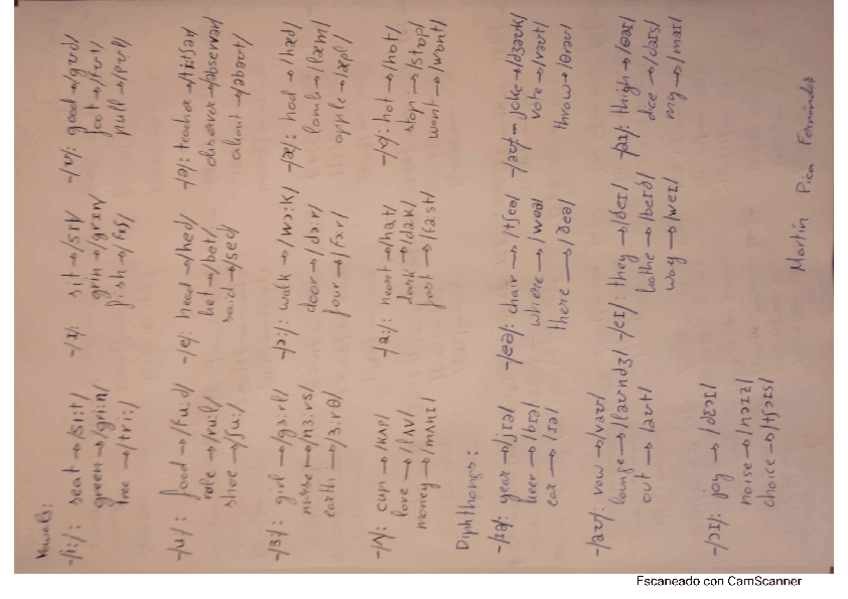 Vowels:
-/i:/: seat → /si:t/
green → /gri:n/
tree → /tri:/
-/ɪ/: sit → /sɪt/
grin → /grɪn/
fish → /fɪʃ/
-/ʊ/: good → /gʊd/
foot → /fʊt/
pull → /pʊl/
-/u/: food → /fu:d/
rule → /ru:l/
shoe → /ʃu:/
-/e/: head → /hed/
bet → /bet/
said → /sed/
-/ə/: teacher → /ti:tʃər/
observer → /əbservər/
about → /əbaʊt/
-/ɜ/: girl → /gɜ:rl/
nurse → /nɜ:rs/
earth → /ɜ:rθ/
-/ɔ:/: walk → /wɔ:k/
door → /dɔ:r/
four → /fɔ:r/
-/æ/: had → /hæd/
lamb → /læm/
apple → /æpl/
-/ʌ/: cup → /kʌp/
love → /lʌv/
money → /mʌnɪ/
-/a:/: heart → /ha:t/
dark → /da:k/
fast → /fa:st/
-/ɒ/: hot → /hɒt/
stop → /stɒp/
want → /wɒnt/
Diphthongs:
-/ɪə/: year → /jɪə/
beer → /bɪə/
ear → /ɪə/
-/eə/: chair → /tʃeə/
where → /weə/
there → /ðeə/
-/əʊ/- joke → /dʒəʊk/
vote → /vəʊt/
throw → /θrəʊ/
-/aʊ/: vow → /vaʊ/
lounge → /laʊndʒ/
out → /aʊt/
-/eɪ/: they → /ðeɪ/
bathe → /beɪð/
way → /weɪ/
-/aɪ/: thigh → /θaɪ/
dice → /daɪs/
my → /maɪ/
-/ɔɪ/: joy → /dʒɔɪ/
noise → /nɔɪz/
choice → /tʃɔɪs/
Martín Pica Fernández
Escaneado con CamScanner